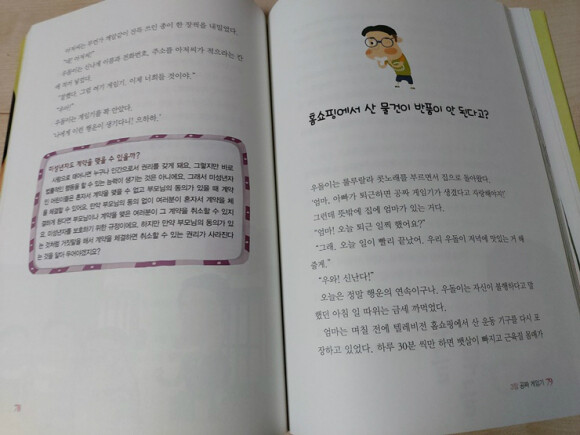 아저씨는 무언가 게임같이 잔뜩 쓰인 종이 한 장을 내밀었다.
우돌이는 신나게 이름과 전화번호, 주소를 아저씨가 적으라는 칸
에 적어 넣었다.
"잘했다. 그럼 여기 게임기. 이제 너희들 것이야."
"우와!"
우돌이는 게임기를 꽉 안았다.
'나에게 이런 행운이 생기다니! 으하하.'
미성년자도 계약을 맺을 수 있을까?
사람으로 태어나면 누구나 인간으로서 권리를 갖게 돼요. 그렇지만 바로
법률적인 행동을 할 수 있는 능력이 생기는 것은 아니에요. 그래서 미성년자
인 어린이들은 혼자서 계약을 맺을 수 없고 부모님의 동의가 있을 때 계약
을 체결할 수 있어요. 만약 부모님의 동의 없이 여러분이 혼자서 계약을 체
결하게 된다면 부모님이나 계약을 맺은 여러분이 그 계약을 취소할 수 있지
요. 미성년자를 보호하기 위한 규정이에요. 하지만 만약 부모님의 동의가 있
는 것처럼 거짓말을 해서 계약을 체결하면 취소할 수 있는 권리가 사라진다
는 것을 알다 두어야겠지요?
78
홈쇼핑에서 산 물건이 반품이 안 된다고?
우돌이는 룰루랄라 콧노래를 부르면서 집으로 돌아왔다.
'엄마, 아빠가 퇴근하면 공짜 게임기가 생겼다고 자랑해야지!'
그런데 뜻밖에 집에 엄마가 있는 거다.
"엄마! 오늘 퇴근 일찍 했어요?"
"그래. 오늘 일이 빨리 끝났어. 우리 우돌이 저녁에 맛있는 거 해
줄게."
"우와! 신난다!"
오늘은 정말 행운의 연속이구나. 우돌이는 자신이 불행하다고 말
했던 아침 일 따위는 금세 까먹었다.
엄마는 며칠 전에 텔레비전 홈쇼핑에서 산 운동 기구를 다시 포
장하고 있었다. 하루 30분 씩만 하면 뱃살이 빠지고 근육질 몸매가
공짜 게임기 79